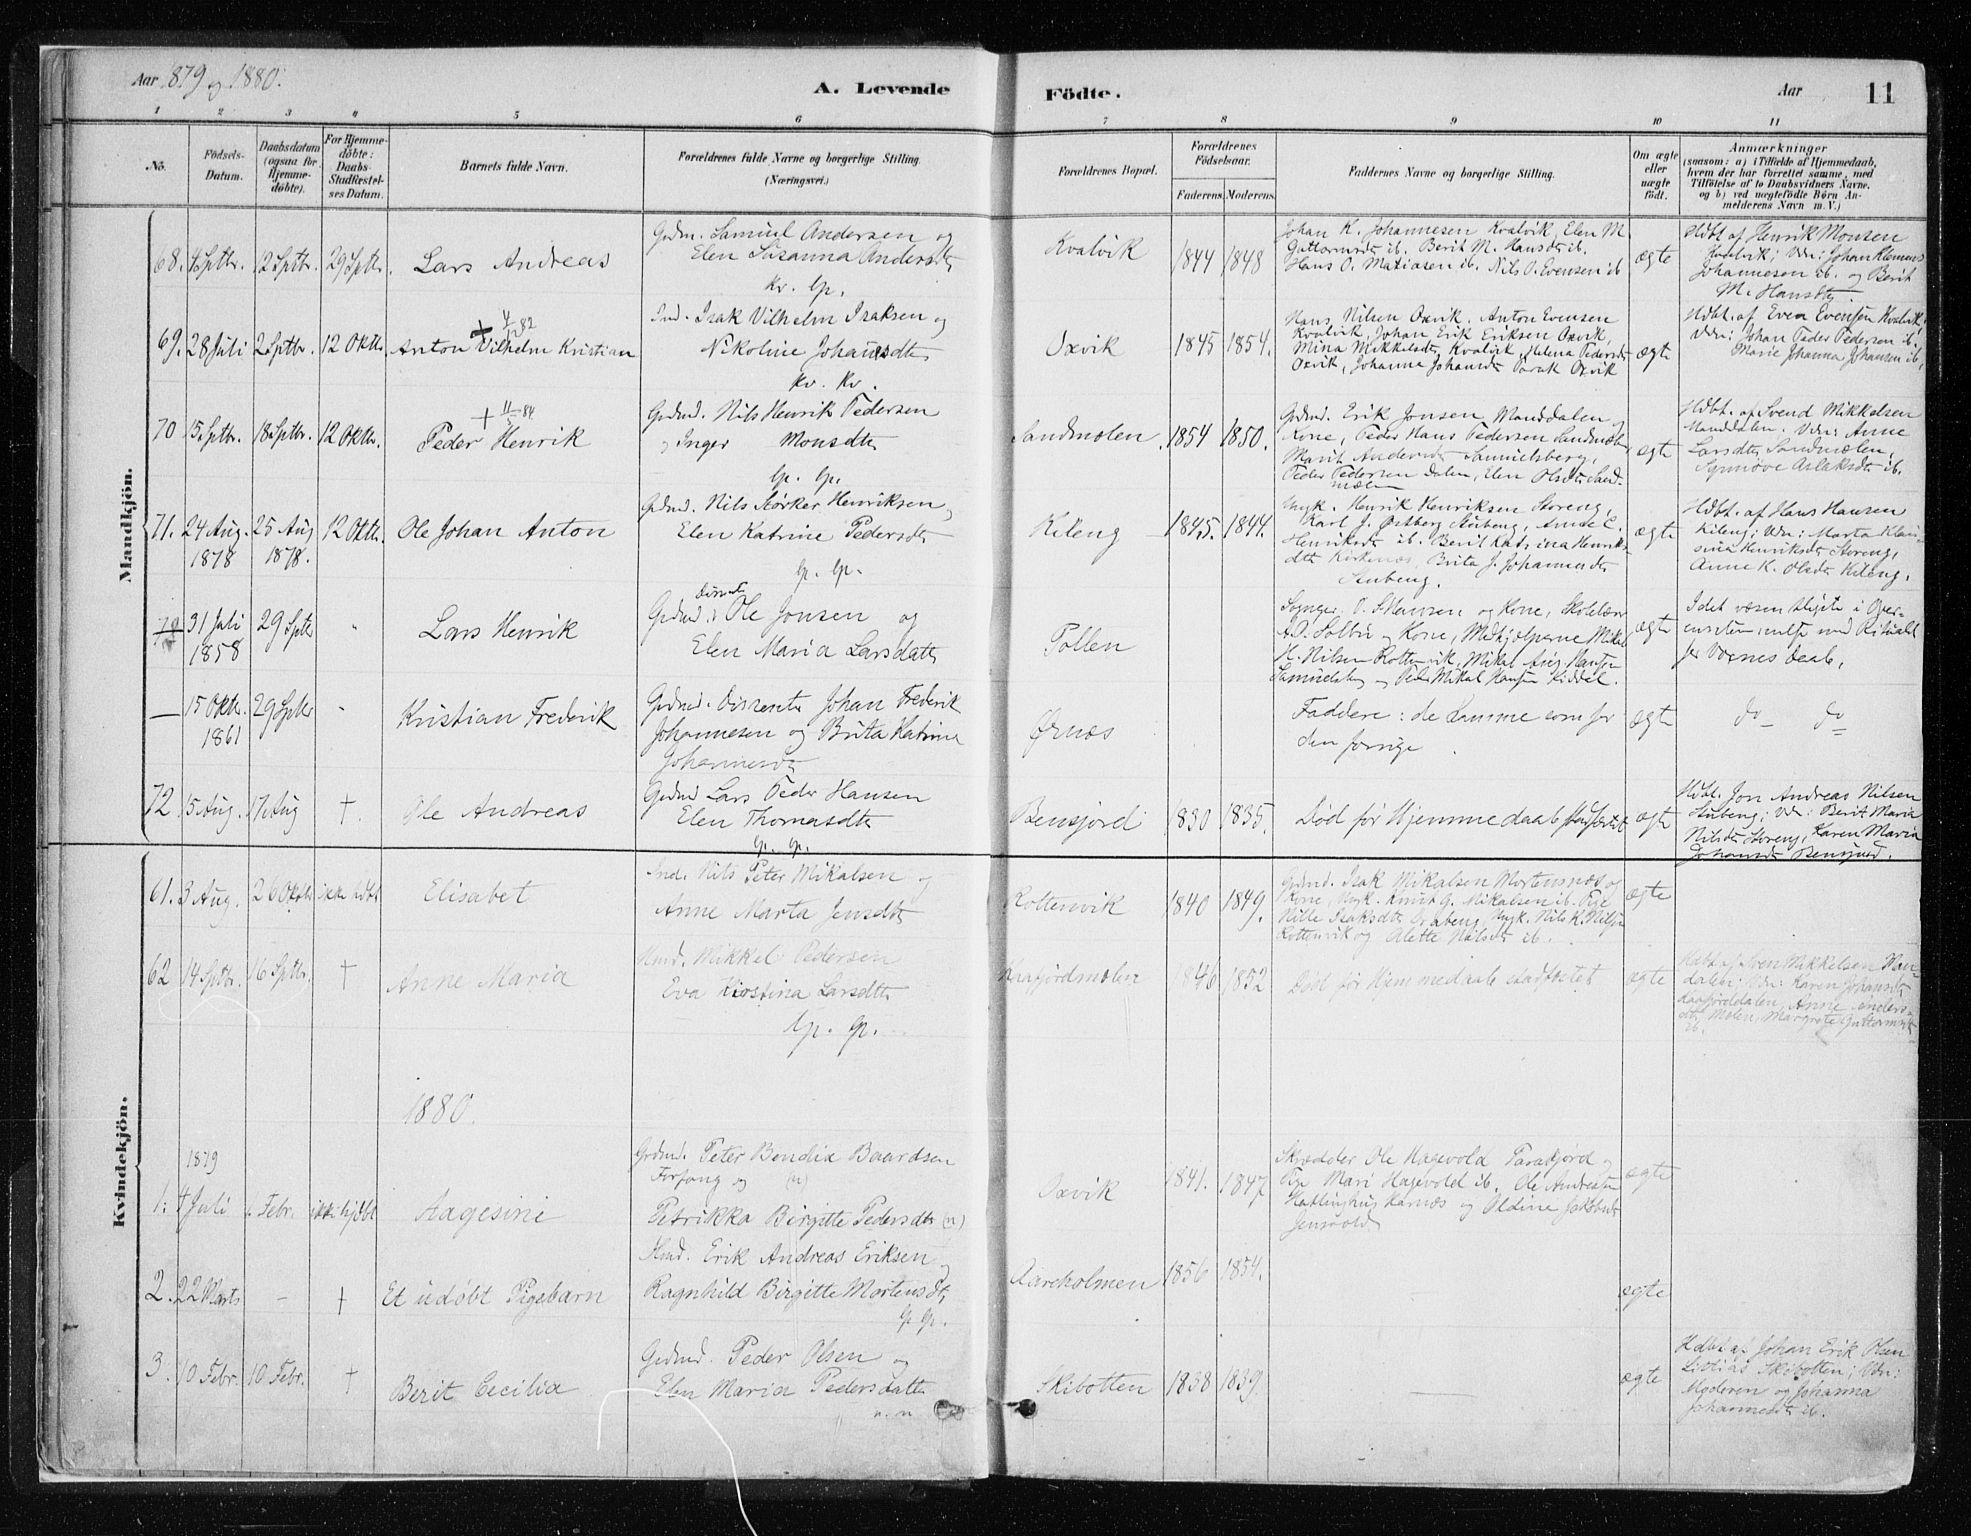 Aar 1879 og 1880.
A. Levende Födte.
Aar
11
1 2 3 4 5 6 7 8 9 10 11
No.
Födsels-Datum.
Daabsdatum (ogsaa for Hjemme-døbte).
For Hjemme-døbte: Daabs-Stadfæstel-ses Datum.
Barnets fulde Navn.
Forældrenes fulde Navne og borgerlige Stilling. (Næringsvei.)
Forældrenes Bopæl.
Forældrenes Födselsaar.
Faderens. Moderens.
Faddernes Navne og borgerlige Stilling.
Om ægte eller uægte født.
Anmærkninger
(saasom: a) i Tilfælde af Hjemmedaab,
hvem der har forrettet samme, med
Tilföielse af to Daabsvidners Navne.
og b) ved uægtefödte Börn An-
melderens Navn m. V.)
Mandkjön.
68. 4 Sptbr. 12 Sptbr. 29 Sptbr. Lars Andreas
Gdmd. Samuel Andersen og
Elen Susanna Andersdtr
Kv. lp.
Kvalvik 1844 1848
Johan K. Johannesen Kvalvik, Elen M.
Guttormsdtr ib. Berit M. Hansdtr ib.
Hans O. Matiasen ib. Nils O. Evensen ib
ægte
Hdbt. af Henrik Monsen
Vdn: Johan Klemens
Johannesen ib. og Berit
M. Hansdtr.
69. 28 Juli 2 Sptbr. 12 Oktbr. Anton Vilhelm Kristian
+ 4/12 82
Ind. Isak Vilhelm Isaksen og
Nikoline Johansdtr
Kv. Kv.
Oxvik 1845 1854.
Hans Nilsen Oxvik, Anton Evensen
Kvalvik, Johan Erik Eriksen Oxvik,
Mina Mikkelsdtr Kvalvik, Helena Pedersdtr
Oxvik, Johanna Johansdtr Oxvik
ægte
Hdbt. af Even Evensen Kvalvik,
Vdn: Johan Peder Pedersen ib.
Marie Johanna Johansen ib.
70 15 Sptbr. 18 Sptbr. 12 Oktbr. Peder Henrik
+ 84
Gdmd. Nils Henrik Pedersen
og Inger Monsdtr
lp. lp.
Sandmolen. 1854 1850.
Gdmd. Erik Jonsen Manddalen og
Kone, Peder Hans Pedersen Sandmælen
Marit Andersdtr Samuelsberg,
Peder Pedersen Dalen, Elen Olsdtr Sand-
mælen
ægte
Hdbt. af Svend Mikkelsen
Manddalen. Vdn: Anne
Larsdtr Sandmælen,
Synnøve Aslaksdtr ib.
71. 24 Aug. 1878 25 Aug 1878. 12 Oktbr. Ole Johan Anton
Gdmd. Nils Størker Henriksen og
Elen Katrine Pedersdtr
lp. lp.
Kileng 1845. 1844.
Ungk. Henrik Henriksen Storeng,
Karl J. Østberg Stubeng, Anne C.
Henriksdtr ib. Berit Katrina Henriks-
dtr Kirkenæs, Brita J. Johannesdtr
Stubeng.
ægte
Hdbt. af Hans Hansen
Kileng; Vdn: Marta Klau-
sina Henriksdtr Storeng,
Anne K. Olsdtr Kileng.
31 Juli 1858 29 Sptbr " Lars Henrik
Gdmd. Ole Jonsen og
Elen Maria Larsdatter
Pollen
Kone, Skolelær
A. O. Solbu og Kone, Medhjælperne Mikal
H. Nilsen Rottenvik, Mikal Aug. Hansen
Samuelsbg og Peder Mikal Hansen Kiddal.
ægte
I det væsentligste i Over-
ensstemmelse med Ritualet
for Voxnes Daab.
— 15 Oktbr. 1861 29 Sptbr " Kristian Frederik
Gdmd. Dissenter Johan Frederik
Johannesen og Brita Katrine
Johannesdtr
Ørnæs
Faddere: de samme som for
den forrige.
ægte
do do
72 15 Aug. 17 Aug † . Ole Andreas
Gdmd Lars Peder Hansen
Elen Thomasdtr
lp. lp.
Bensjord 1830 1835.
Død før Hjemmedaab stadfæstet
ægte
Hdbt. Jon Andreas Nilsen
Stubeng; Vdn: Berit Maria
Nilsdtr Storeng, Karen Maria
Johansdtr Bensjord.
Kvindekjön.
61. 3 Aug. 26 Oktbr ikke hdbt Elisabet
Ind. Nils Peter Mikalsen og
Anne Marta Jensdtr
Rottenvik 1840 1849.
Gdmd. Isak Mikalsen Mortensnæs og
Kone, Ungk. Knut G. Mikalsen ib. Pige
Nille Isaksdtr Ungk. Nils K. Nilsen
Rottenvik og Alette Nilsdtr ib.
ægte
62 14 Sptbr. 16 Sptbr. † Anne Maria
Hmd. Mikkel Pedersen
Eva Kirstina Larsdtr
lp. lp.
Kaafjordmolen 1846 1852
Død før Hjemmedaab stadfæstet
ægte
Hdbt af Sven Mikkelsen Man-
dalen; Vdn: Karen Johansdtr
Kaafjorddalen, Anne Anders-
dtr Molen, Margrete Guttormsdtr
ib.
1880.
1879
1. 4 Juli 1 Febr. ikke hjdbt Aagesine
Gdmd. Peter Bendix Baardsen
Forfang og (n)
Petrikka Birgitte Pedersdtr (n)
Oxvik 1841. 1847.
Skrædder Ole Hagevold og
Pige Mari Hagevold ib. Ole Andreasen
Karnæs og Oldine Jakobsdtr
Jensvold
ægte
2. 22 Marts — † Et udøbt Pigebarn
Hmd. Erik Andreas Eriksen og
Ragnhild Birgitte Mortensdtr
lp lp.
Aareholmen 1856 1854.
ægte
3. 10 Febr. 10 Febr. † Berit Cecilia
Gdmd. Peder Olsen og
Elen Maria Pedersdatter
n. n
Skibotten 1838 1839.
ægte
Hdbt af Johan Erik Olsen
Skibotten; Vdn:
Moderen og Johanna
Johannesdtr ib.